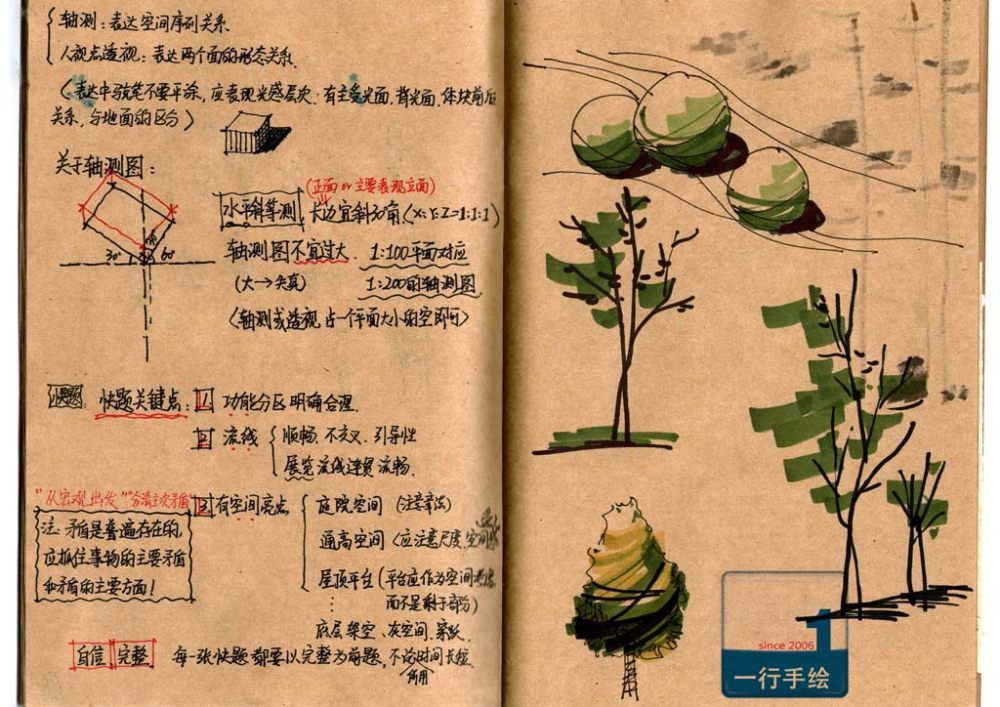 轴测：表达空间序列关系
人视点透视：表达两个面的形态关系.
（表达中马克笔不要平涂，应表现光感层次：有主受光面，背光面，体块前后
关系，与地面的区分）
关于轴测图：
（正面 or 主要表现立面）
水平斜等测，长边宜斜30°角（X:Y:Z=1:1:1）
30° 60°
轴测图不宜过大. 1:100平面对应
（大→失真） 1:200的轴测图.
（轴测或透视 占一个平面大小的空即可）
快题 快题关键点：1 功能分区明确合理.
2 流线 顺畅. 不交叉. 引导性
展览流线连贯流畅.
"从宏观出发""分清主次矛盾"
3 有空间亮点 庭院空间（注意章法）
注：矛盾是普遍存在的，
应抓住事物的主要矛盾
和矛盾的主要方面！
通高空间（应注意尺度，空间
屋顶平台（平台应作为空间考虑
而不是剩于部分）
底层架空、灰空间、
自信 完整 每一张快题都要以完整为前题，不论所用时间长短.
1
since 2006
一行手绘